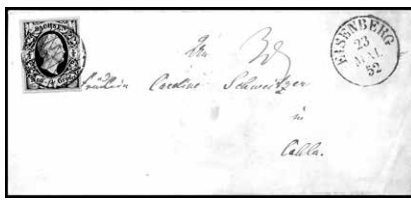 SACHSEN
EISENBERG
23
MAI
52
Fräulein Caroline Schweitzer
in
Cahla.